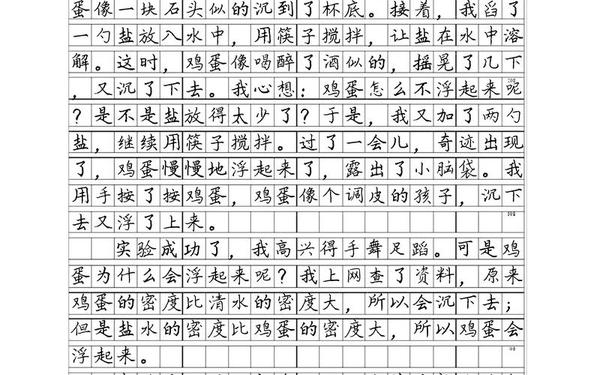 蛋像一块石头似的沉到了杯底。接着，我舀了
一勺盐放入水中，用筷子搅拌，让盐在水中溶
解。这时，鸡蛋像喝醉了酒似的，摇晃了几下
，又沉了下去。我心想：鸡蛋怎么不浮起来呢
？是不是盐放得太少了？于是，我又加了两勺
盐，继续用筷子搅拌。过了一会儿，奇迹出现
了，鸡蛋慢慢地浮起来了，露出了小脑袋。我
用手按了按鸡蛋，鸡蛋像个调皮的孩子，沉下
去又浮了上来。
实验成功了，我高兴得手舞足蹈。可是鸡
蛋为什么会浮起来呢？我上网查了资料，原来
鸡蛋的密度比清水的密度大，所以会沉下去；
但是盐水的密度比鸡蛋的密度大，所以鸡蛋会
浮起来。